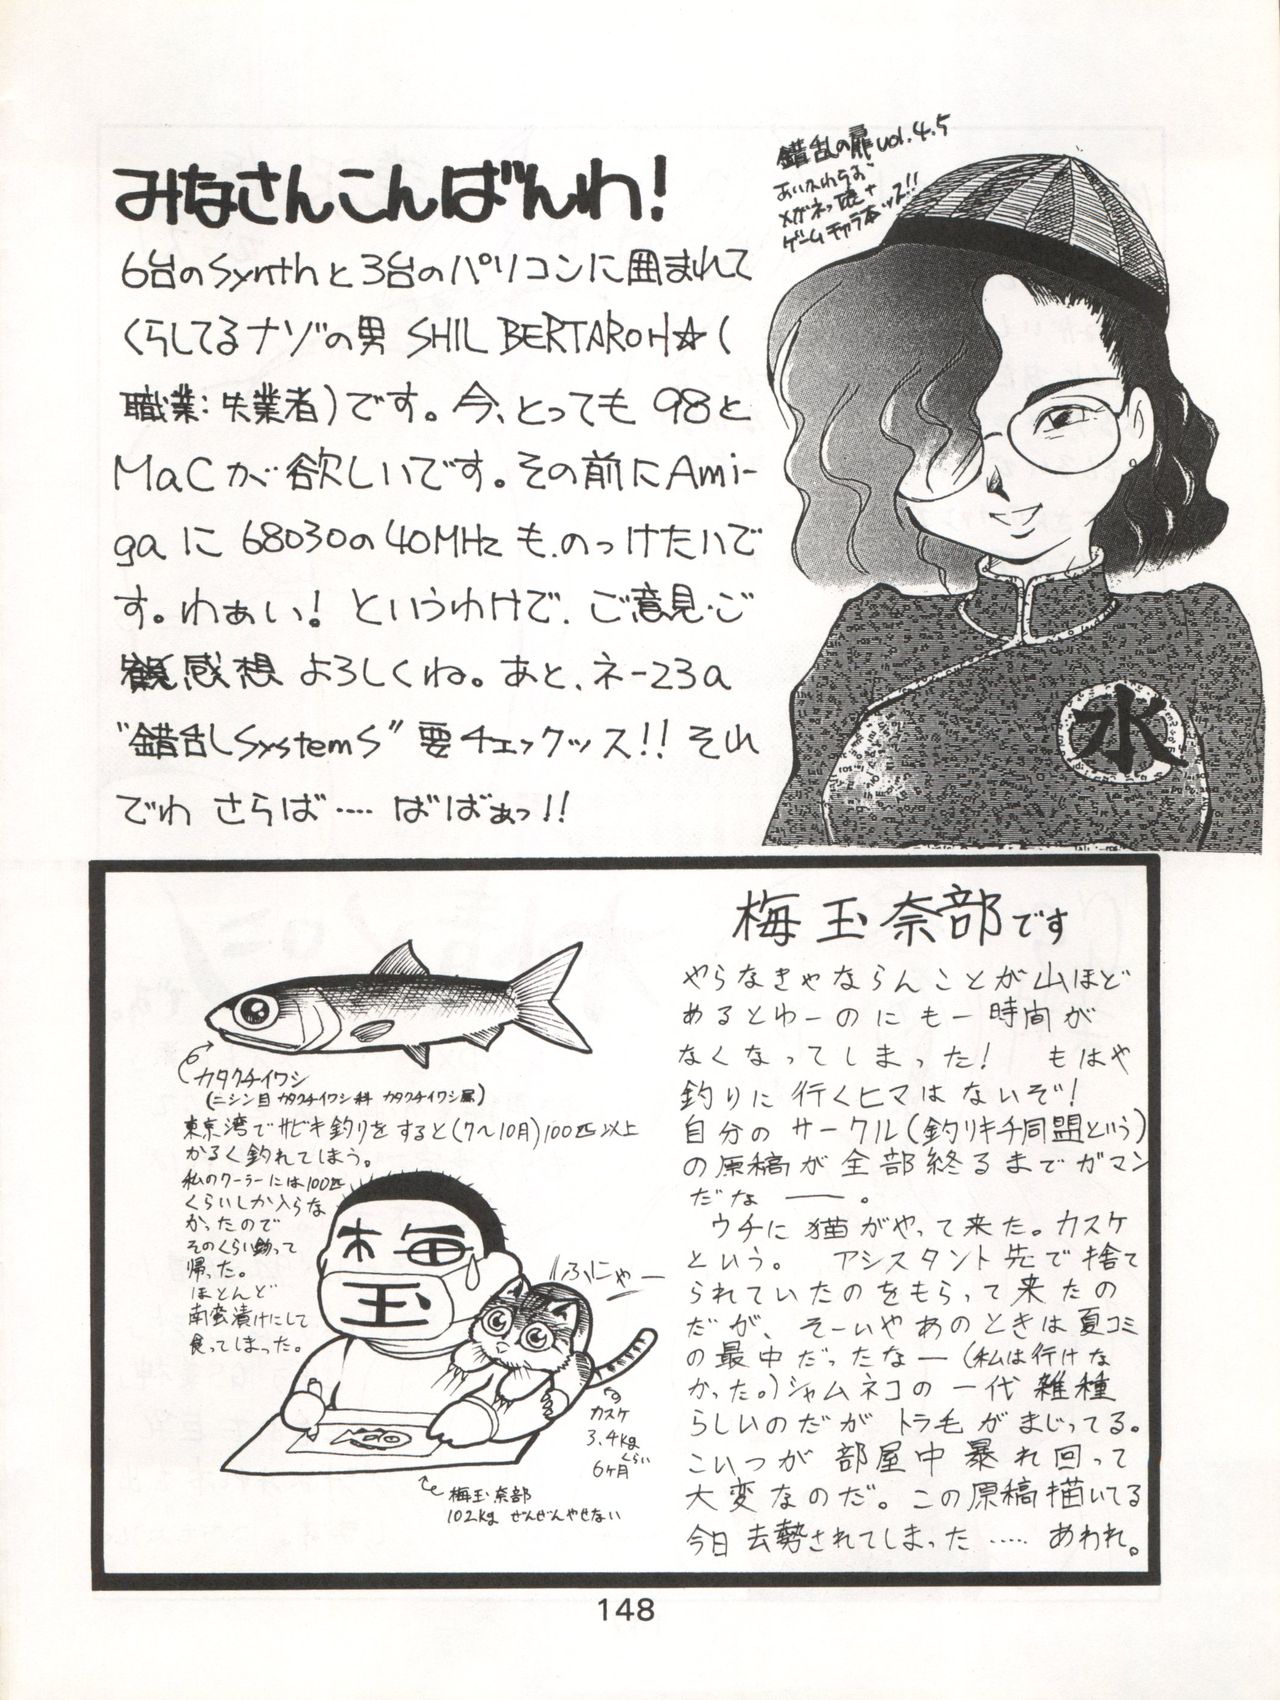 錯乱の扉vol.4.5
メガネっ娘+
ゲームキャラ本ッス!!
みなさんこんばんわ!
6台のSynthと3台のパソコンに囲まれて
くらしてるナゾの男 SHIL BERTAROH☆(
職業:失業者)です。今、とっても 98と
MaCが欲しいです。その前にAmi-
gaに68030の40MHzも、のっけたいで
す。わぁい! というわけで、ご意見・ご
感想 よろしくね。あと、ネ-23a
"錯乱SystemS"要チェックッス!! それ
でわ さらば…… ばばぁっ!!
梅玉奈部です
やらなきゃならんことが山ほど
あるとゆーのにもー時間が
なくなってしまった! もはや
釣りに行くヒマはないぞ!
自分のサークル(釣りキチ同盟という)
の原稿が全部終るまでガマン
だなー。
ウチに猫がやって来た。カスケ
という。 アシスタント先で捨て
られていたのをもらって来たの
だが、そーいやあのときは夏コミ
の最中だったなー(私は行けな
かった。)シャムネコの一代雑種
らしいのだがトラ毛がまじってる。
こいつが部屋中暴れ回って
大変なのだ。この原稿描いてる
今日去勢されてしまった…… あわれ。
カタクチイワシ
(ニシン目 カタクチイワシ科 カタクチイワシ属)
東京湾でサビキ釣りをすると(7〜10月)100匹以上
かるく釣れてしまう。
私のクーラーには100匹
くらいしか入らな
かったので
そのくらい釣って
帰った。
ほとんど
南蛮漬けにして
食ってしまった。
梅
玉
ふにゃー
カスケ
3.4kg
くらい
6ヶ月
梅玉奈部
102kg ぜんぜんやせない
水
148